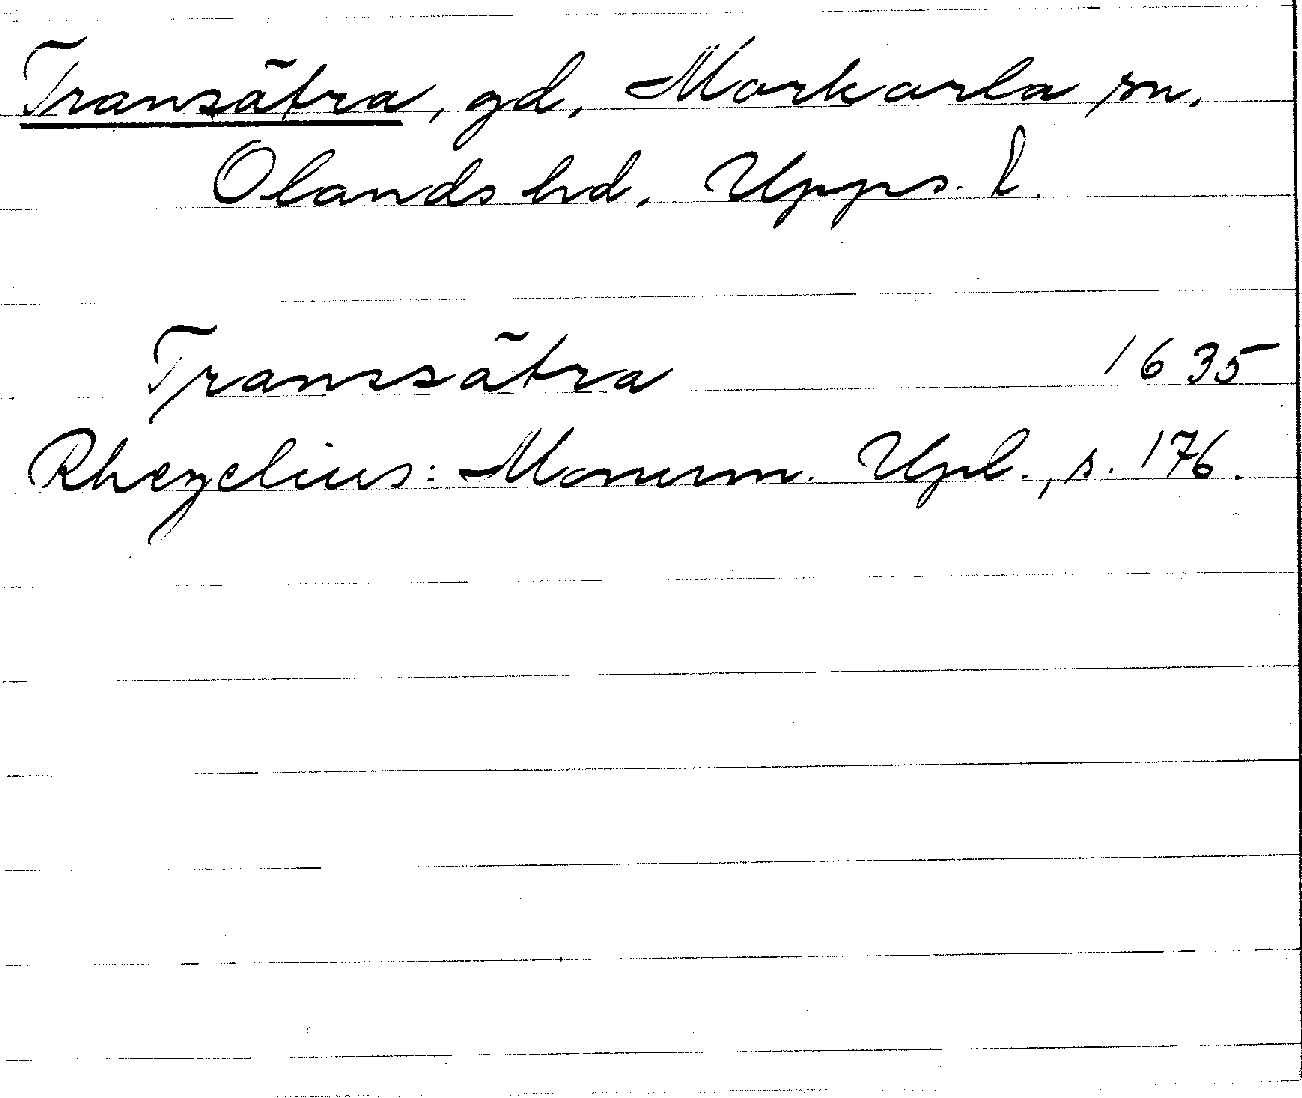 Transätra, gd, Morkarla sn,
Olands hd, Upps. l.
Transsätra 1635
Rhezelius: Monum. Upl., s. 176.